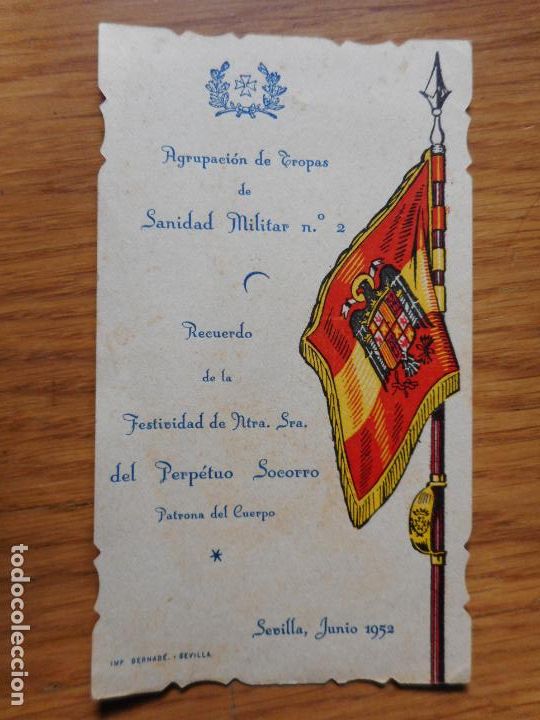 Agrupación de Tropas
de
Sanidad Militar n.º 2
Recuerdo
de la
Festividad de Ntra. Sra.
del Perpétuo Socorro
Patrona del Cuerpo
Sevilla, Junio 1952
IMP. BERNABÉ. - SEVILLA.
todocoleccion.net